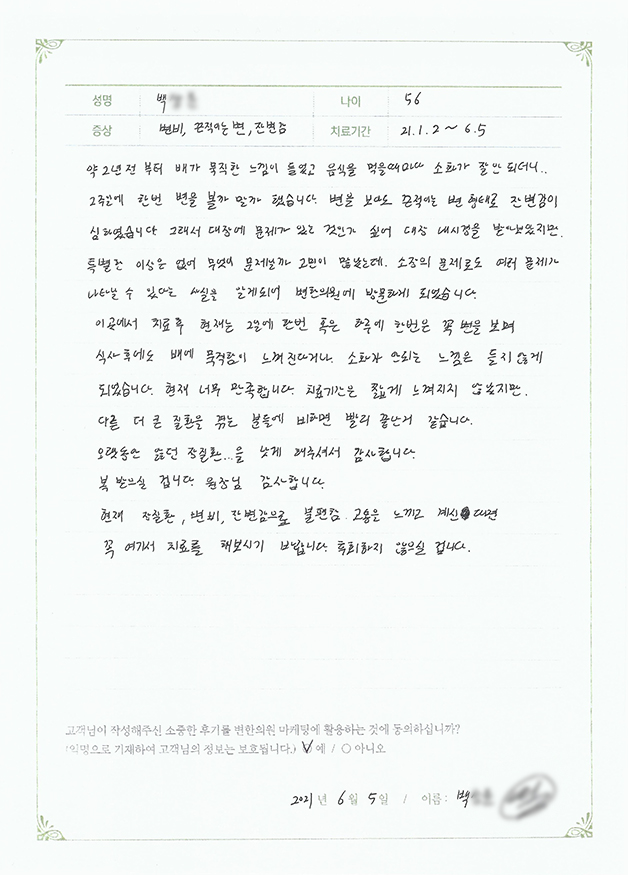 성명 백 나이 56
증상 변비, 끈적이는 변, 잔변감 치료기간 21.1.2 ~ 6.5
약 2년 전 부터 배가 묵직한 느낌이 들었고 음식을 먹을때마다 소화가 잘 안되더니..
2주일에 한번 변을 볼까 말까 했습니다. 변을 보아도 끈적이는 변 형태로 잔변감이
심하였습니다 그래서 대장에 문제가 있는 것인가 싶어 대장 내시경을 받아보았지만.
특별한 이상은 없어 무엇이 문제일까 고민이 많았는데. 소장의 문제로도 여러 문제가
나타날 수 있다는 사실을 알게되어 변한의원에 방문하게 되었습니다.
이곳에서 치료후 현재는 2일에 한번 혹은 하루에 한번은 꼭 변을 보며
식사 후에도 배에 묵직함이 느껴진다거나. 소화가 안되는 느낌은 들지 않게
되었습니다. 현재 너무 만족합니다. 치료기간은 짧게 느껴지지 않았지만.
다른 더 큰 질환을 겪는 분들에 비하면 빨리 끝난거 같습니다.
오랫동안 앓던 장질환...을 낫게 해주셔서 감사합니다.
복 받으실 겁니다. 원장님 감사합니다.
현재 장질환, 변비, 잔변감으로 불편함. 고통을 느끼고 계신 다면
꼭 여기서 치료를 해보시기 바랍니다. 후회하지 않으실 겁니다.
고객님이 작성해주신 소중한 후기를 변한의원 마케팅에 활용하는 것에 동의하십니까?
(익명으로 기재하여 고객님의 정보는 보호됩니다.) ○ 예 / ○ 아니오
2021 년 6 월 5 일 / 이름 : 백